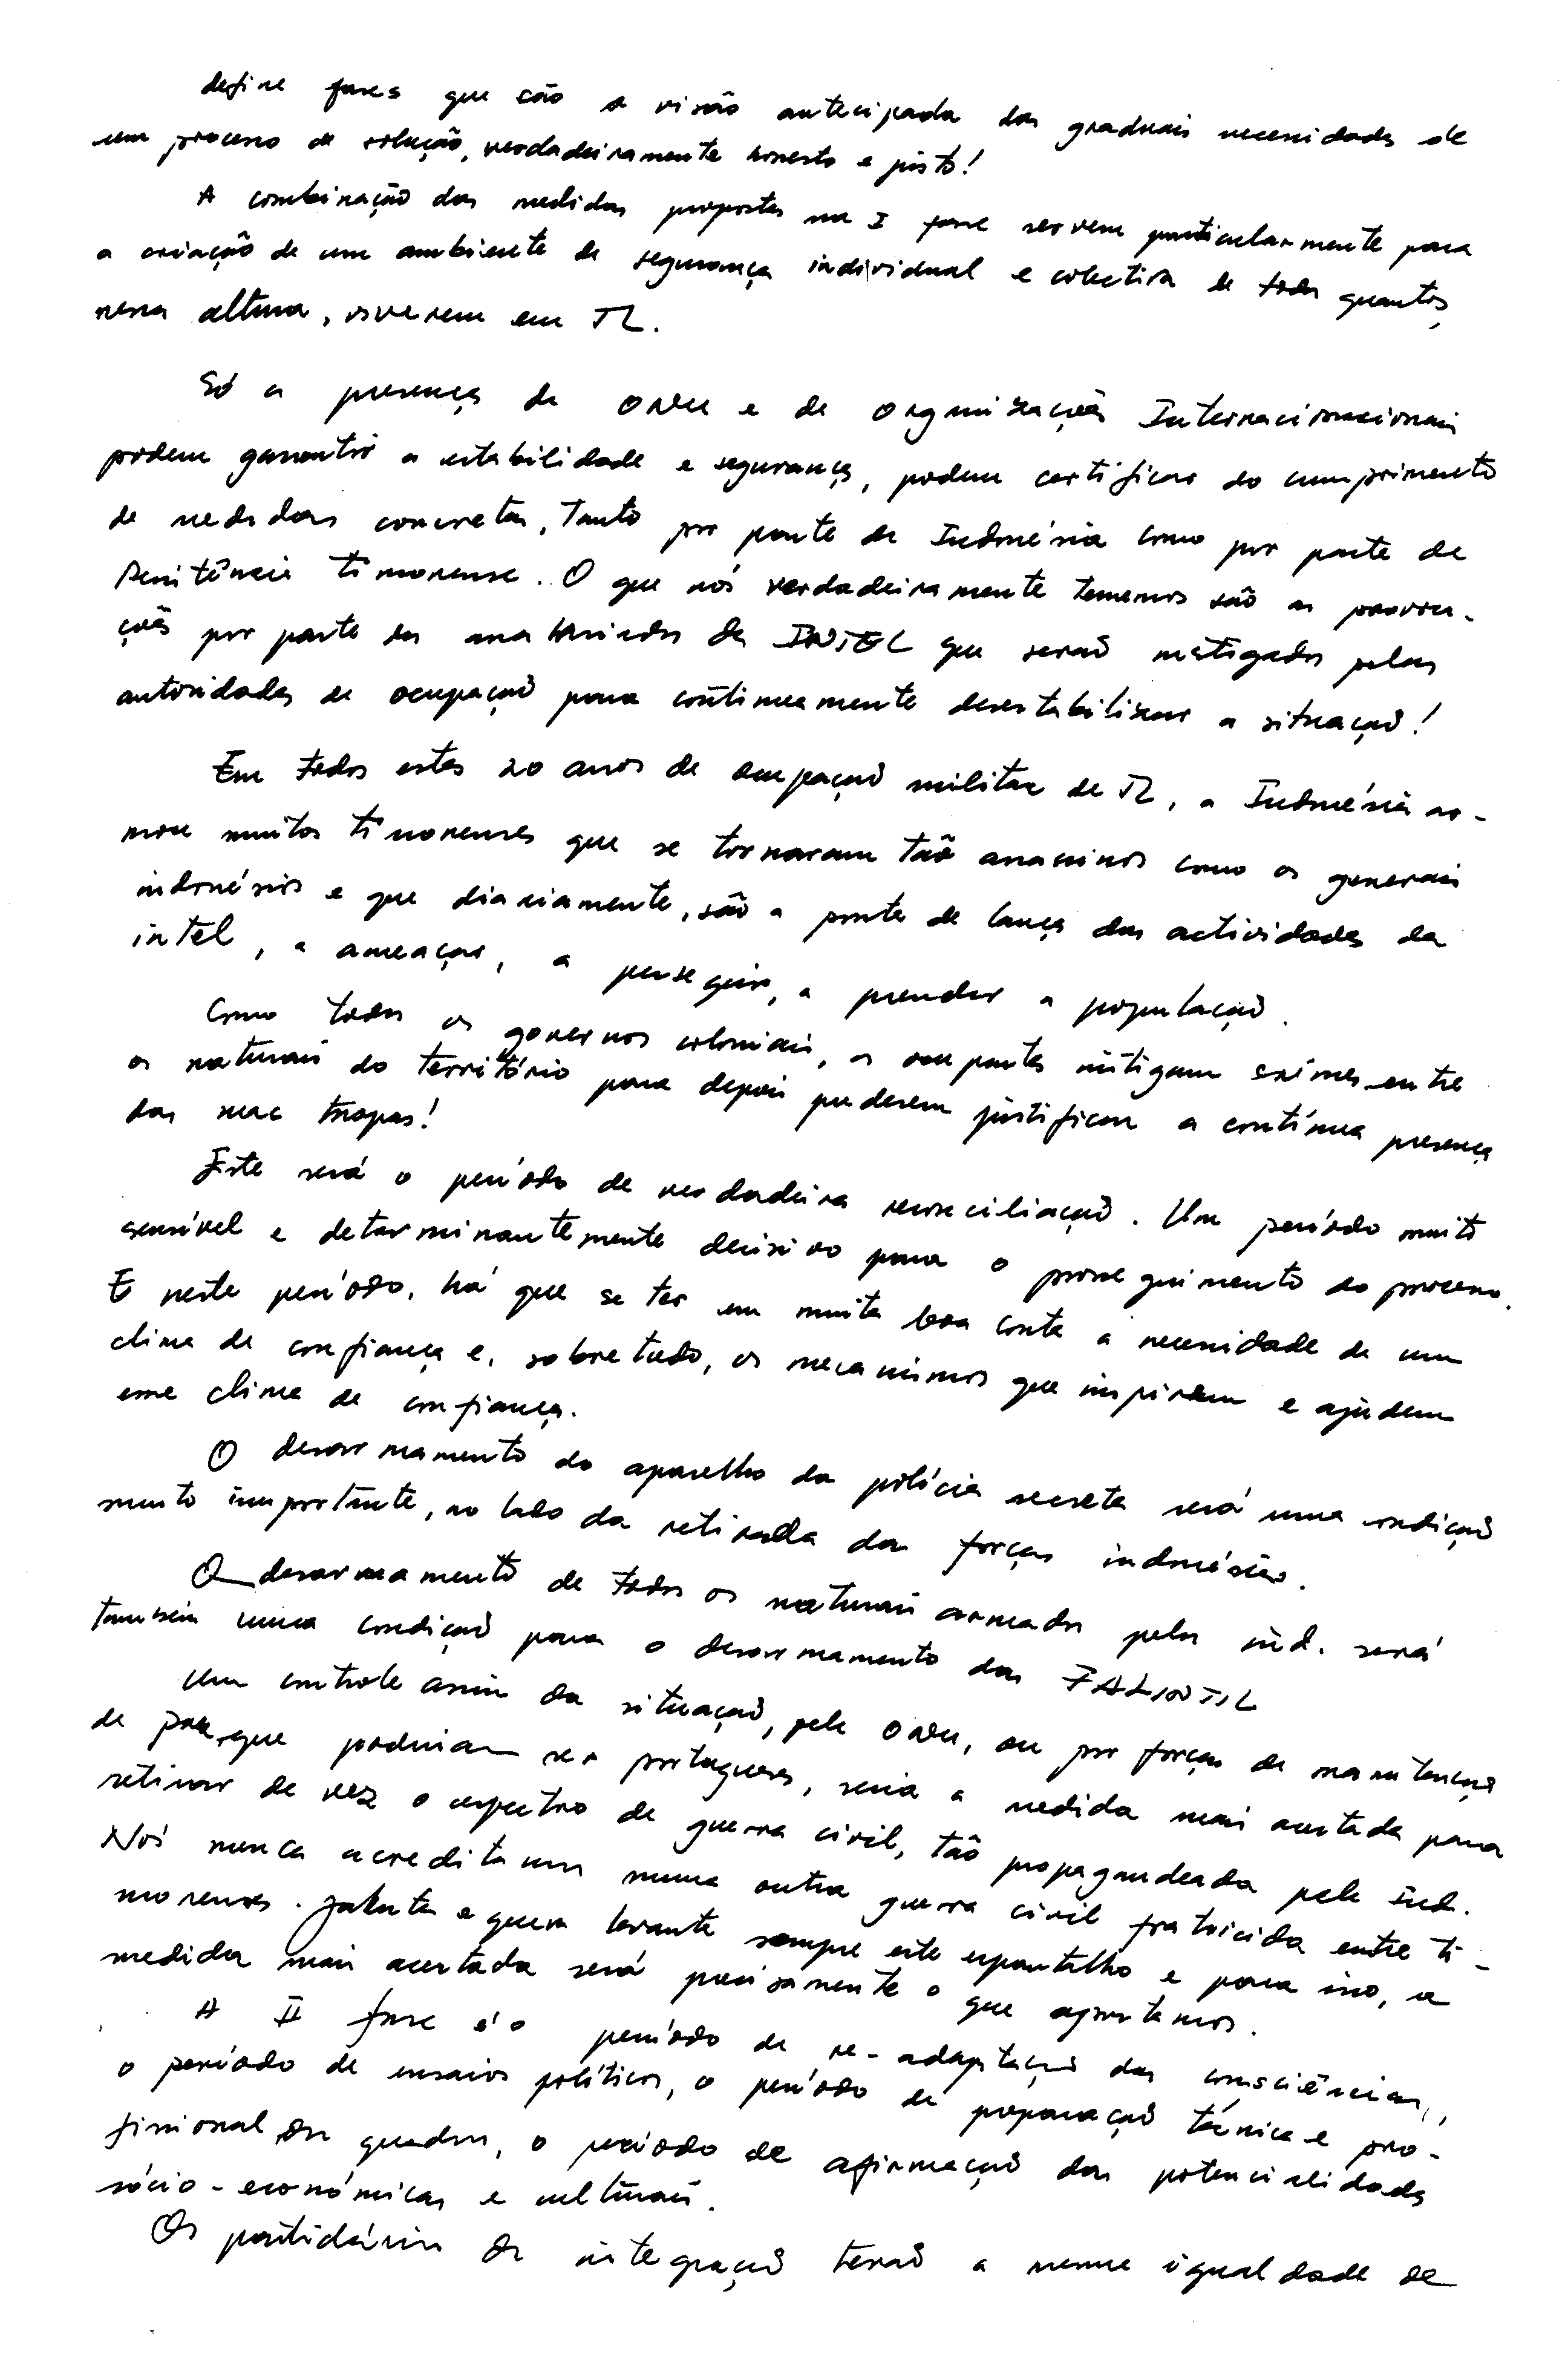 define fases que são a visão antecipada das graduais necessidades de
um processo de solução, verdadeiramente honesto e justo!
A combinação das medidas propostas na I fase servem particularmente para
a criação de um ambiente de segurança individual e colectiva de todos quantos,
nessa altura, viverem em TL.
Só a presença da ONU e de Organizações Internacionacionais
podem garantir a estabilidade e segurança, podem certificar do cumprimento
de medidas concretas, tanto por parte da Indonésia como por parte da
Resistência timorense. O que nós verdadeiramente tememos são as provoca-
ções por parte dos da INTEL que serão instigados pelas
autoridades de ocupação para continuamente desestabilizar a situação!
Em todos estes 20 anos de ocupação militar de TL, a Indonésia ar-
mou muitos timorenses que se tornaram tão assassinos como os generais
indonésios e que diariamente, são a ponta de lança das actividades da
intel, a ameaçar, a perseguir, a prender a população.
Como todos os governos coloniais, os ocupantes instigam entre
os naturais do território para depois puderem justificar a contínua presença
das suas tropas!
Este será o período de verdadeira reconciliação. Um período muito
sensível e determinantemente decisivo para o prosseguimento do processo.
E neste período, há que se ter em muita boa conta a necessidade de um
clima de confiança e, sobretudo, os mecanismos que inspirem e ajudem
esse clima de confiança.
O desarmamento do aparelho da polícia secreta será uma condição
muito importante, ao lado da retirada das forças indonésias.
O desarmamento de todos os naturais armados pelos ind. será
também uma condição para o desarmamento das FALINTIL
Um controle assim da situação, pela ONU, ou por forças de manutenção
de paz, que poderiam ser portuguesas, seria a medida mais acertada para
retirar de vez o espectro de guerra civil, tão propagandeada pela ind.
Nós nunca acreditamos numa outra guerra civil fratricida entre ti-
morenses. Jakarta é quem levanta sempre este espantalho e para isso, a
medida mais acertada será precisamente o que apontamos.
A II fase é o período de re-adaptação das consciências,
o período de ensaios políticos, o período de preparação técnica e pro-
fissional dos quadros, o período de afirmação das potencialidades
sócio-económicas e culturais.
Os partidários da integração terão a mesma igualdade de